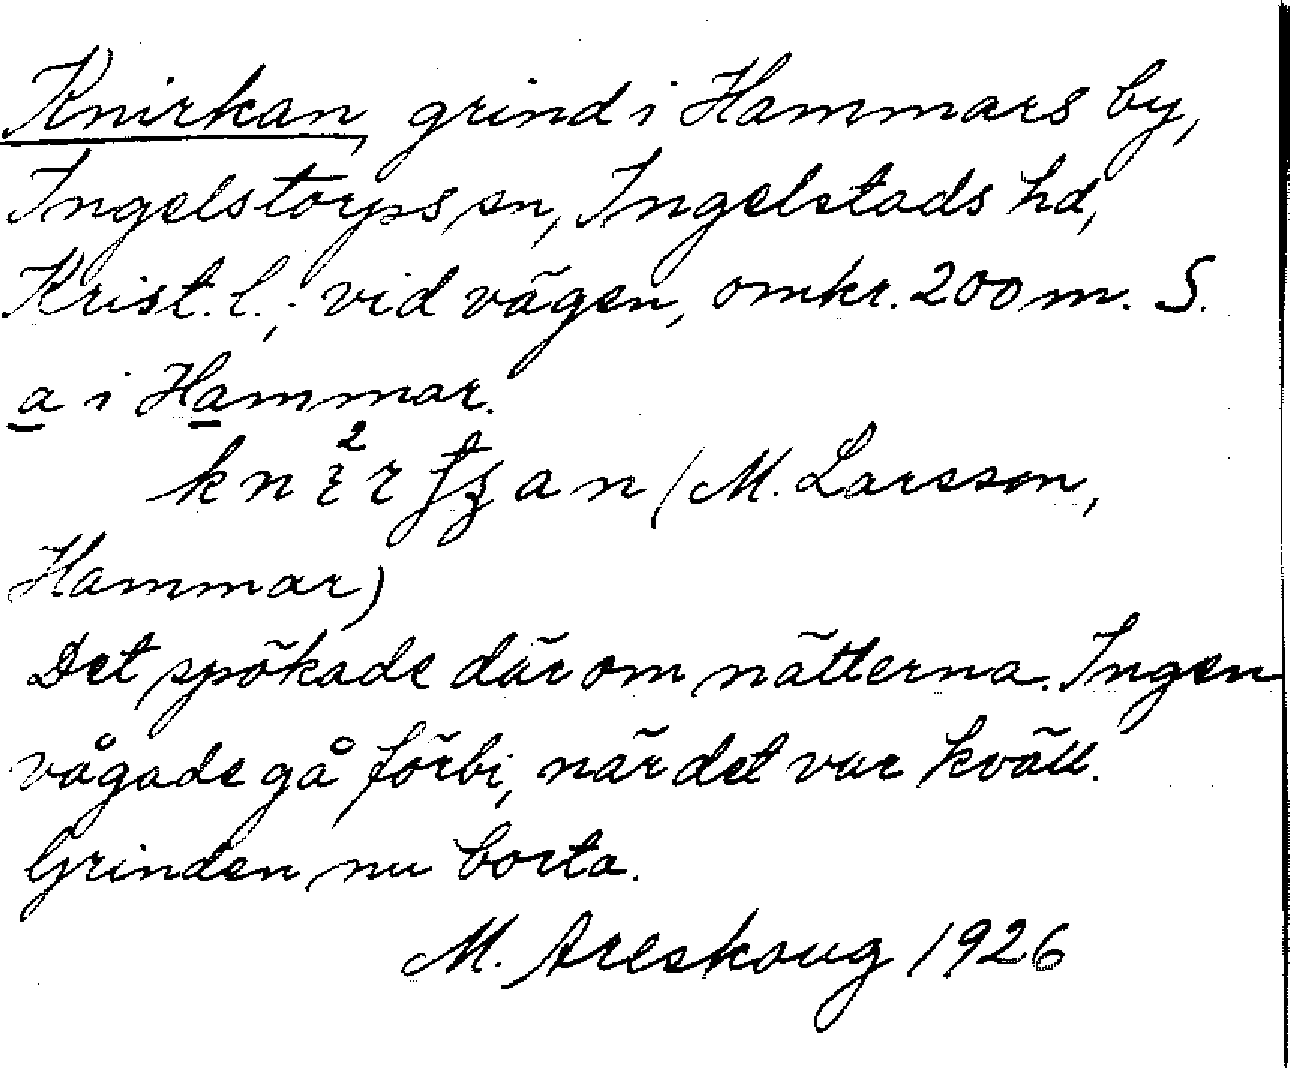 Knirkan, grind i Hammars by,
Ingelstorps sn, Ingelstads hd,
Krist. l.; vid vägen, omkr. 200 m. S.
a i Hammar.
(M. Larsson,
Hammar)
Det spökade där om nätterna. Ingen
vågade gå förbi, när det var kväll.
Grinden nu borta.
M. Areskoug 1926